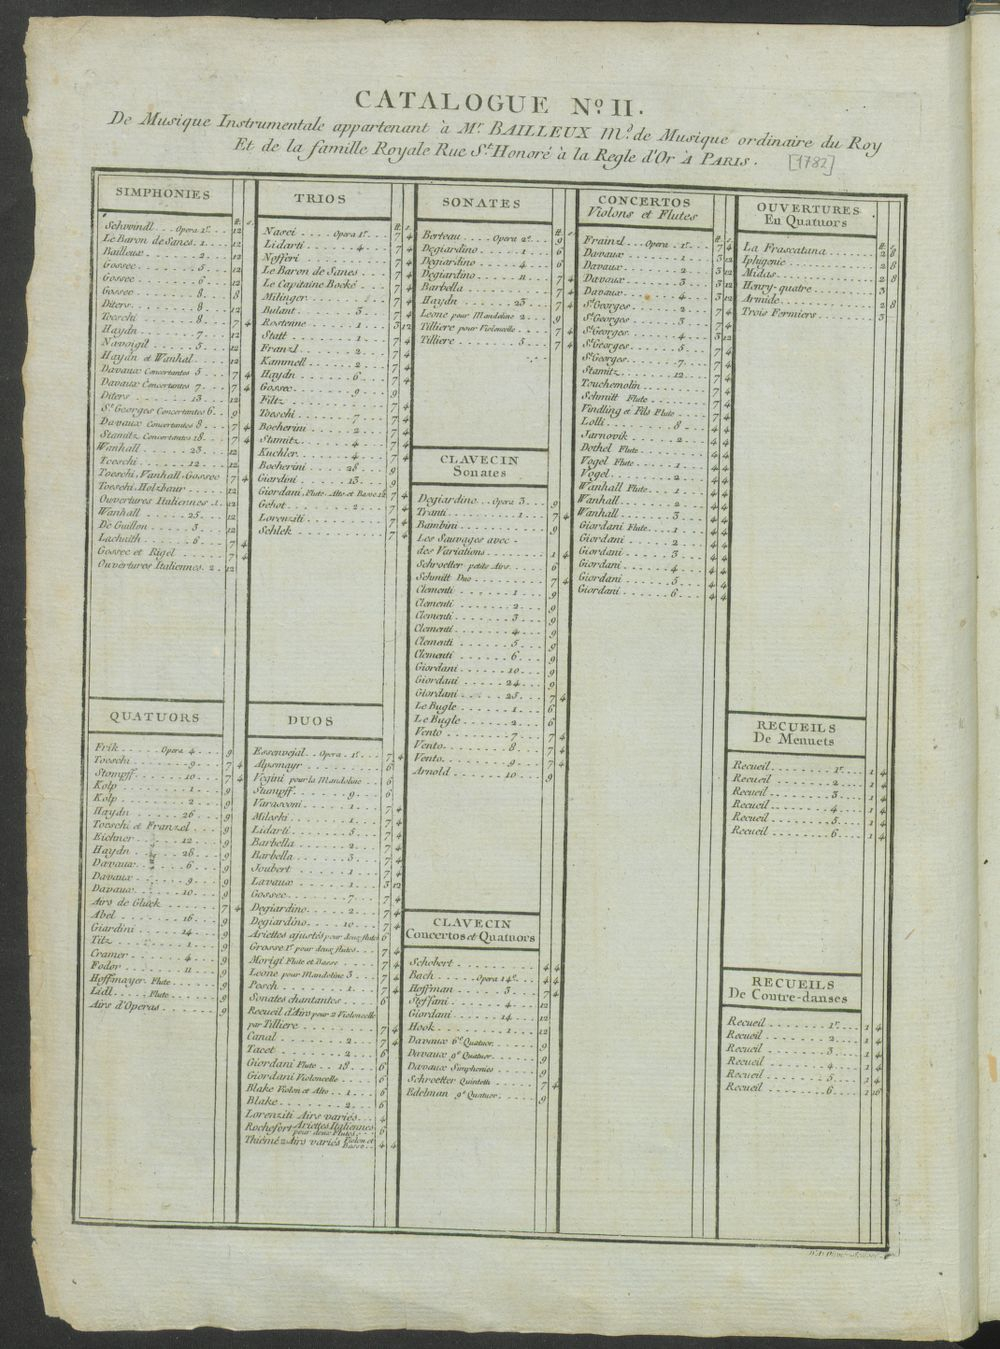 CATALOGUE No. II.
De Musique Instrumentale appartenant à Mr. BAILLEUX Md. de Musique ordinaire du Roy
Et de la famille Royale Rue St. Honoré à la Regle d'Or A PARIS.
[1782]
SIMPHONIES
Schwindl... Opera 1r... 12
Le Baron de Sanes. 1... 12
Bailleux... 2... 12
Gossec... 5... 12
Gossec... 6... 12
Gossec... 8... 8
Diters... 8... 12
Toeschi... 8... 7 4
Haydn... 7... 12
Navoigil... 5... 12
Haydn et Wanhal... 12
Davaux Concertantes 5... 7 4
Davaux Concertantes 7... 7 4
Diters... 13... 12
St. Georges Concertantes 6... 9
Davaux Concertantes 8... 7 4
Stamitz Concertantes 18... 7 4
Wanhall... 23... 12
Toeschi... 12... 12
Toeschi, Vanhall, Gossec 7 4
Toeschi, Holzbaur... 12
Ouvertures Italiennes 1. 12
Wanhall... 25... 12
De Guillon... 3... 12
Lachnith... 6... 7 4
Gossec et Rigel... 7 4
Ouvertures Italiennes. 2. 12
QUATUORS
Frik... Opera 4... 9
Toeschi... 9... 7 4
Stompff... 10... 7 4
Kolp... 1... 9
Kolp... 2... 9
Haydn... 26... 9
Toeschi et Franzel... 9
Eichner... 12... 9
Haydn... 28... 9
Davaux... 6... 9
Davaux... 9... 9
Davaux... 10... 9
Airs de Gluck... 7 4
Abel... 16... 9
Giardini... 14... 9
Titz... 1... 9
Cramer... 4... 9
Fodor... 11... 9
Hoffmayer Flute... 9
Lidl... Flute... 9
Airs d'Operas... 9
TRIOS
Nasci... Opera 1r... 7 4
Lidarti... 4... 7 4
Nofferi... 7 4
Le Baron de Sanes... 7 4
Le Capitaine Bocké... 7 4
Milinger... 7 4
Bulant... 3... 7 4
Rostenne... 1... 3 12
Statt... 1... 7 4
Franzl... 2... 7 4
Kammell... 2... 7 4
Haydn... 6... 7 4
Gossec... 9... 9
Filtz... 7 4
Toeschi... 7... 7 4
Bocherini... 2... 7 4
Stamitz... 4... 7 4
Kuchler... 4... 7 4
Bocherini... 28... 9
Giardini... 13... 9
Giordani, Flute. Alto et Basse 12 7 4
Gehot... 2... 7 4
Lorenziti... 7 4
Schlek... 7 4
DUOS
Essenvejal... Opera. 1r... 7 4
Alpsmayr... 6... 6
Vegini pour la Mandoline... 6
Stumpff... 9... 6
Varasconi... 1... 7 4
Miloshi... 1... 7 4
Lidarti... 5... 7 4
Barbella... 2... 7 4
Barbella... 3... 7 4
Joubert... 1... 7 4
Lavaux... 1... 3 12
Gossec... 7... 7 4
Degiardino... 2... 7 4
Degiardino... 10... 7 4
Ariettes ajustés pour deux flutes 6
Grosse 1r pour deux flutes... 7 4
Morigi Flute et Basse... 7 4
Leone pour Mandoline 3... 7 4
Pesch... 1... 7 4
Sonates chantantes... 6
Recueil d'Airs pour 2 Violoncelle
par Tilliere... 7 4
Canal... 2... 7 4
Tacet... 2... 6
Giordani Flute... 18... 6
Giordani Violoncelle... 6
Blake Violon et Alto... 1... 6
Blake... 2... 6
Lorenziti Airs variés... 4
Rochefort Ariettes Italiennes pour deux Flutes... 6
Thiémé 2 Airs variés Violon et Basse... 4 4
SONATES
Berteau... Opera 2e... 9
Degiardino... 1... 6
Degiardino... 4... 6
Degiardino... 11... 7 4
Barbella... 7 4
Haydn... 23... 7 4
Leone pour Mandoline 2... 9
Tilliere pour Violoncelle... 7 4
Tilliere... 5... 7 4
CLAVECIN
Sonates
Degiardino... Opera 3... 9
Tranti... 1... 7 4
Bambini... 9
Les Sauvages avec
des Variations... 1 4
Schroetter petits Airs... 6
Schmitt Duo... 7 4
Clementi... 1... 9
Clementi... 2... 9
Clementi... 3... 9
Clementi... 4... 9
Clementi... 5... 9
Clementi... 6... 9
Giordani... 10... 9
Giordani... 24... 9
Giordani... 25... 7 4
Le Bugle... 1... 6
Le Bugle... 2... 6
Vento... 7... 7 4
Vento... 8... 7 4
Vento... 9... 7 4
Arnold... 10... 9
CLAVECIN
Concertos et Quatuors
Schobert... 4 4
Bach... Opera 14e... 4 4
Hoffman... 3... 7 4
Steffani... 4... 12
Giordani... 14... 12
Hook... 1... 12
Davaux 6e Quatuor... 9
Davaux 9e Quatuor... 9
Davaux Simphonies... 9
Schroetter Quintetti... 7 4
Edelman 9e Quatuor... 9
CONCERTOS
Violons et Flutes
Frainzl... Opera. 1r... 7 4
Davaux... 1... 3 12
Davaux... 2... 3 12
Davaux... 3... 3 12
Davaux... 4... 3 12
St. Georges... 2... 7 4
St. Georges... 3... 7 4
St. Georges... 4... 3 12
St. Georges... 5... 7 4
St. Georges... 7... 7 4
Stamitz... 12... 7 4
Touchemolin... 7 4
Schmitt Flute... 7 4
Vindling et Fils Flute... 7 4
Lolli... 8... 4 4
Jarnovik... 2... 4 4
Dothel Flute... 4 4
Vogel Flute... 1... 4 4
Vogel... 2... 4 4
Wanhall Flute... 1... 4 4
Wanhall... 2... 4 4
Wanhall... 3... 4 4
Giordani Flute... 1... 4 4
Giordani... 2... 4 4
Giordani... 3... 4 4
Giordani... 4... 4 4
Giordani... 5... 4 4
Giordani... 6... 4 4
OUVERTURES
En Quatuors
La Frascatana... 2 8
Iphigenie... 2 8
Midas... 2 8
Henry-quatre... 3
Armide... 2 8
Trois Fermiers... 3
RECUEILS
De Menuets
Recueil... 1r... 1 4
Recueil... 2... 1 4
Recueil... 3... 1 4
Recueil... 4... 1 4
Recueil... 5... 1 4
Recueil... 6... 1 4
RECUEILS
De Contre-danses
Recueil... 1r... 1 4
Recueil... 2... 1 4
Recueil... 3... 1 4
Recueil... 4... 1 4
Recueil... 5... 1 4
Recueil... 6... 1 16